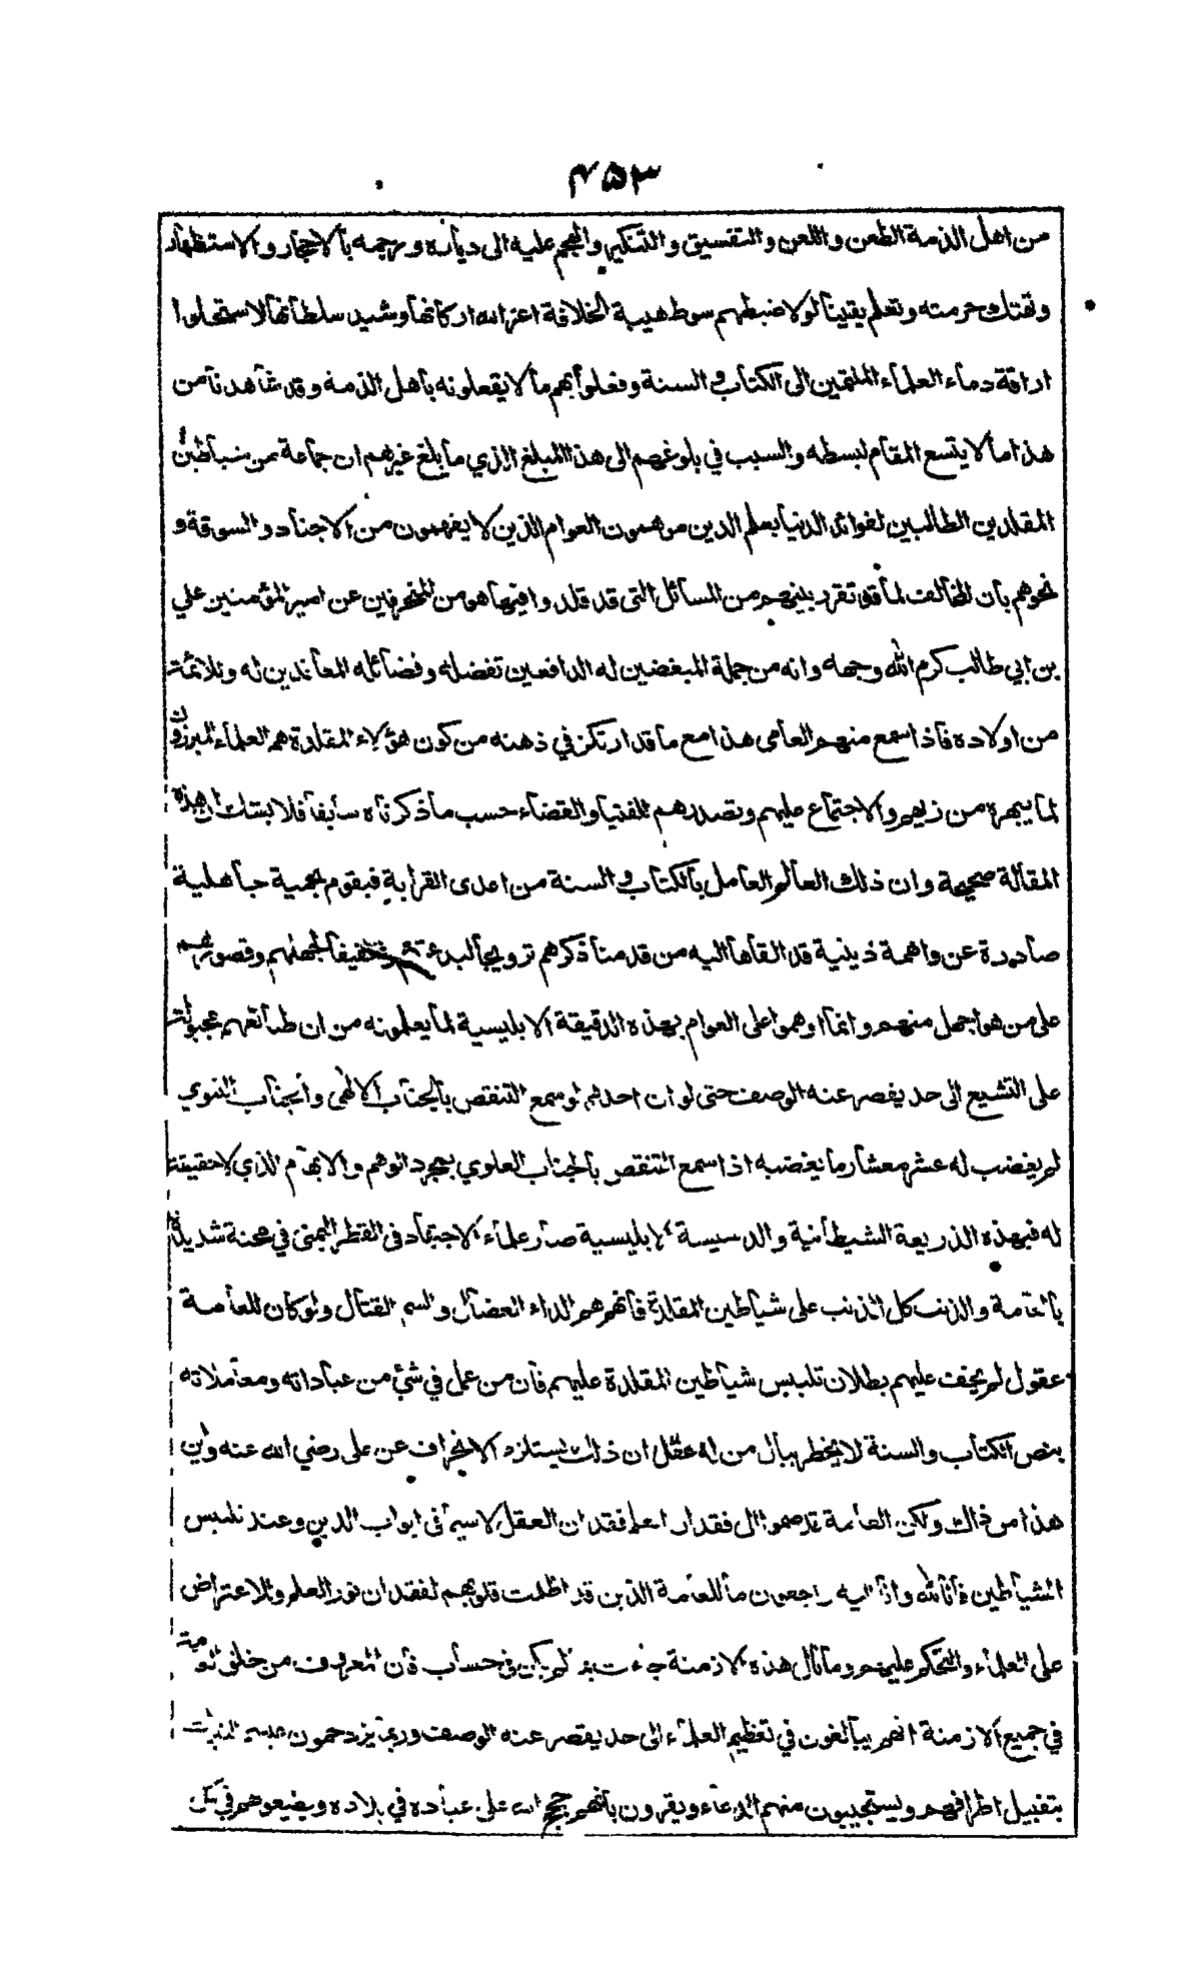 ۴۵۳
من اهل الذمة الطعن واللعن والتفسيق والتنكير والهجم عليه الى دياره ورجمه بالاحجار والاستظهار
وتهتك حرمته وتعلم يقينا لولا ضبطهم سوط هيبة الخلافة اعز الله اركانها وشيد سلطانها لاستحلوا
اراقة دماء العلماء المنتمين الى الكتاب والسنة وفعلوا بهم ما لا يفعلونه باهل الذمة وقد شاهدنا من
هذا ما لا يتسع المقام لبسطه والسبب في بلوغهم الى هذا المبلغ الذي ما بلغ غيرهم ان جماعة من شياطين
المقلدين الطالبين لفوائد الدنيا بعلم الدين يوهمون العوام الذين لا يفهمون من الاجناد والسوقة و
نحوهم بان المخالف لما قد تقرر بينهم من المسائل التي قد قلدوا فيها هو من المنحرفين عن امير المؤمنين علي
بن ابي طالب كرم الله وجهه وانه من جملة المبغضين له الدافعين تفضله وفضائله المعاندين له وللائمة
من اولاده فاذا سمع منهم العامي هذا مع ما قد ارتكز في ذهنه من كون هؤلاء المقلدة هم العلماء المبرزون
لما يبهره من زيهم والاجتماع عليهم وتصدرهم للفتيا والقضاء حسب ما ذكرناه سابقا فلا يشك ان هذه
المقالة صحيحة وان ذلك العالم العامل بالكتاب والسنة من اعدى القرابة فيقوم بحمية جاهلية
صادرة عن واهمة دينية قد القاها اليه من قدمنا ذكرهم ترويجا لبدعتهم وتنفيقا لجهلهم وقصورهم
على من هو اجهل منهم وانما اوهموا على العوام بهذه الدقيقة الابليسية لما يعلمونه من ان طبائعهم مجبولة
على التشيع الى حد يقصر عنه الوصف حتى لو ان احدهم لو سمع التنقص بالجناب الالهي والجناب النبوي
لم يغضب له عشر معشار ما يغضبه اذا سمع التنقص بالجناب العلوي بمجرد الوهم والايهام الذي لا حقيقة
له فبهذه الذريعة الشيطانية والدسيسة الابليسية صار علماء الاجتهاد في القطر اليمني في محنة شديدة
بالعامة والذنب كل الذنب على شياطين المقلدة فانهم هم الداء العضال والسم القتال ولو كان للعامة
عقول لم يخف عليهم بطلان تلبيس شياطين المقلدة عليهم فان من عمل في شئ من عباداته ومعاملاته
بنص الكتاب والسنة لا يخطر ببال من له عقل ان ذلك يستلزم الانحراف عن علي رضي الله عنه واين
هذا من ذاك ولكن العامة قد ضموا الى فقدان العلم فقدان العقل لا سيما في ابواب الدين وعند تلبيس
الشياطين فانا لله وانا اليه راجعون ما للعامة الذين قد اظلمت قلوبهم لفقدان نور العلم وللاعتراض
على العلماء والتحكم عليهم وما بال هذه الازمنة جاءت بما لم يكن في حساب فان المعروف من خلق العامة
في جميع الازمنة انهم يبالغون في تعظيم العلماء الى حد يقصر عنه الوصف وربما يزدحمون عليهم للتبرك
بتقبيل اطرافهم ويستجيبون منهم الدعاء ويقرون بانهم حجج الله على عباده في بلاده ويطيعونهم في كل